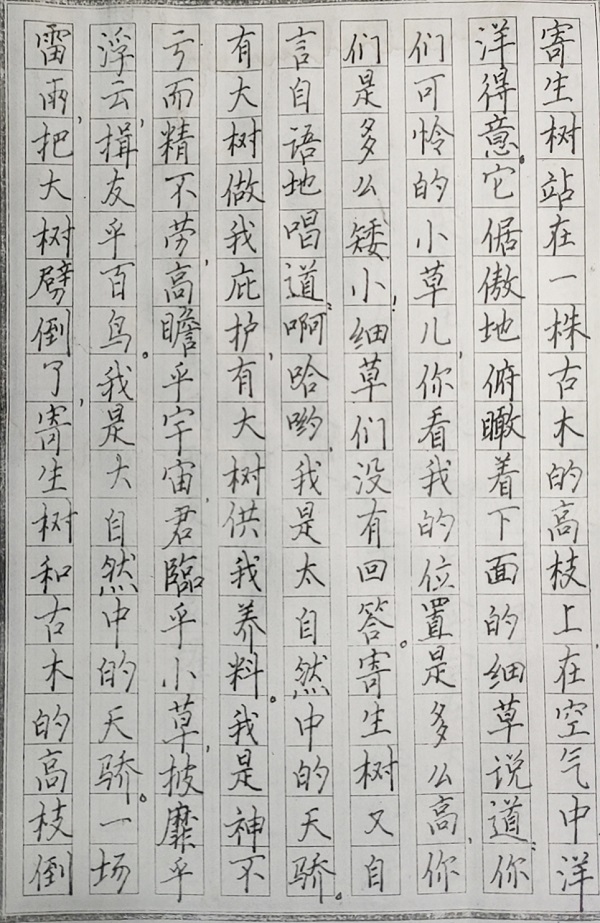 寄生树站在一株古木的高枝上,在空气中洋
洋得意。它倨傲地俯瞰着下面的细草说道:你
们可怜的小草儿,你看我的位置是多么高,你
们是多么矮小!细草们没有回答。寄生树又自
言自语地唱道:啊哈哟,我是太自然中的天骄。
有大树做我庇护,有大树供我养料。我是神不
亏而精不劳,高瞻乎宇宙,君臨乎小草,披靡乎
浮云,揖友乎百鸟。我是大自然中的天骄。一场
雷雨,把大树劈倒了,寄生树和古木的高枝倒